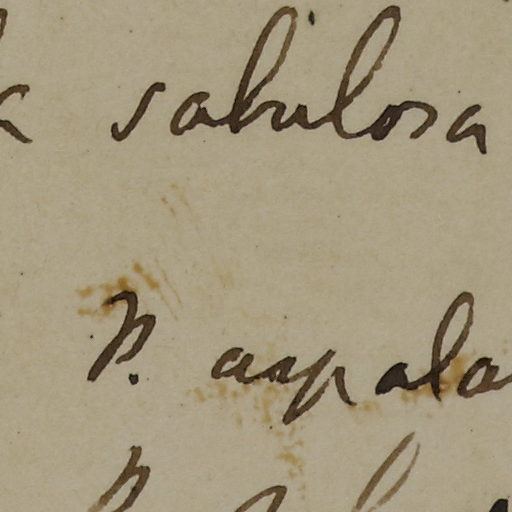 sabulosa
P. aspala